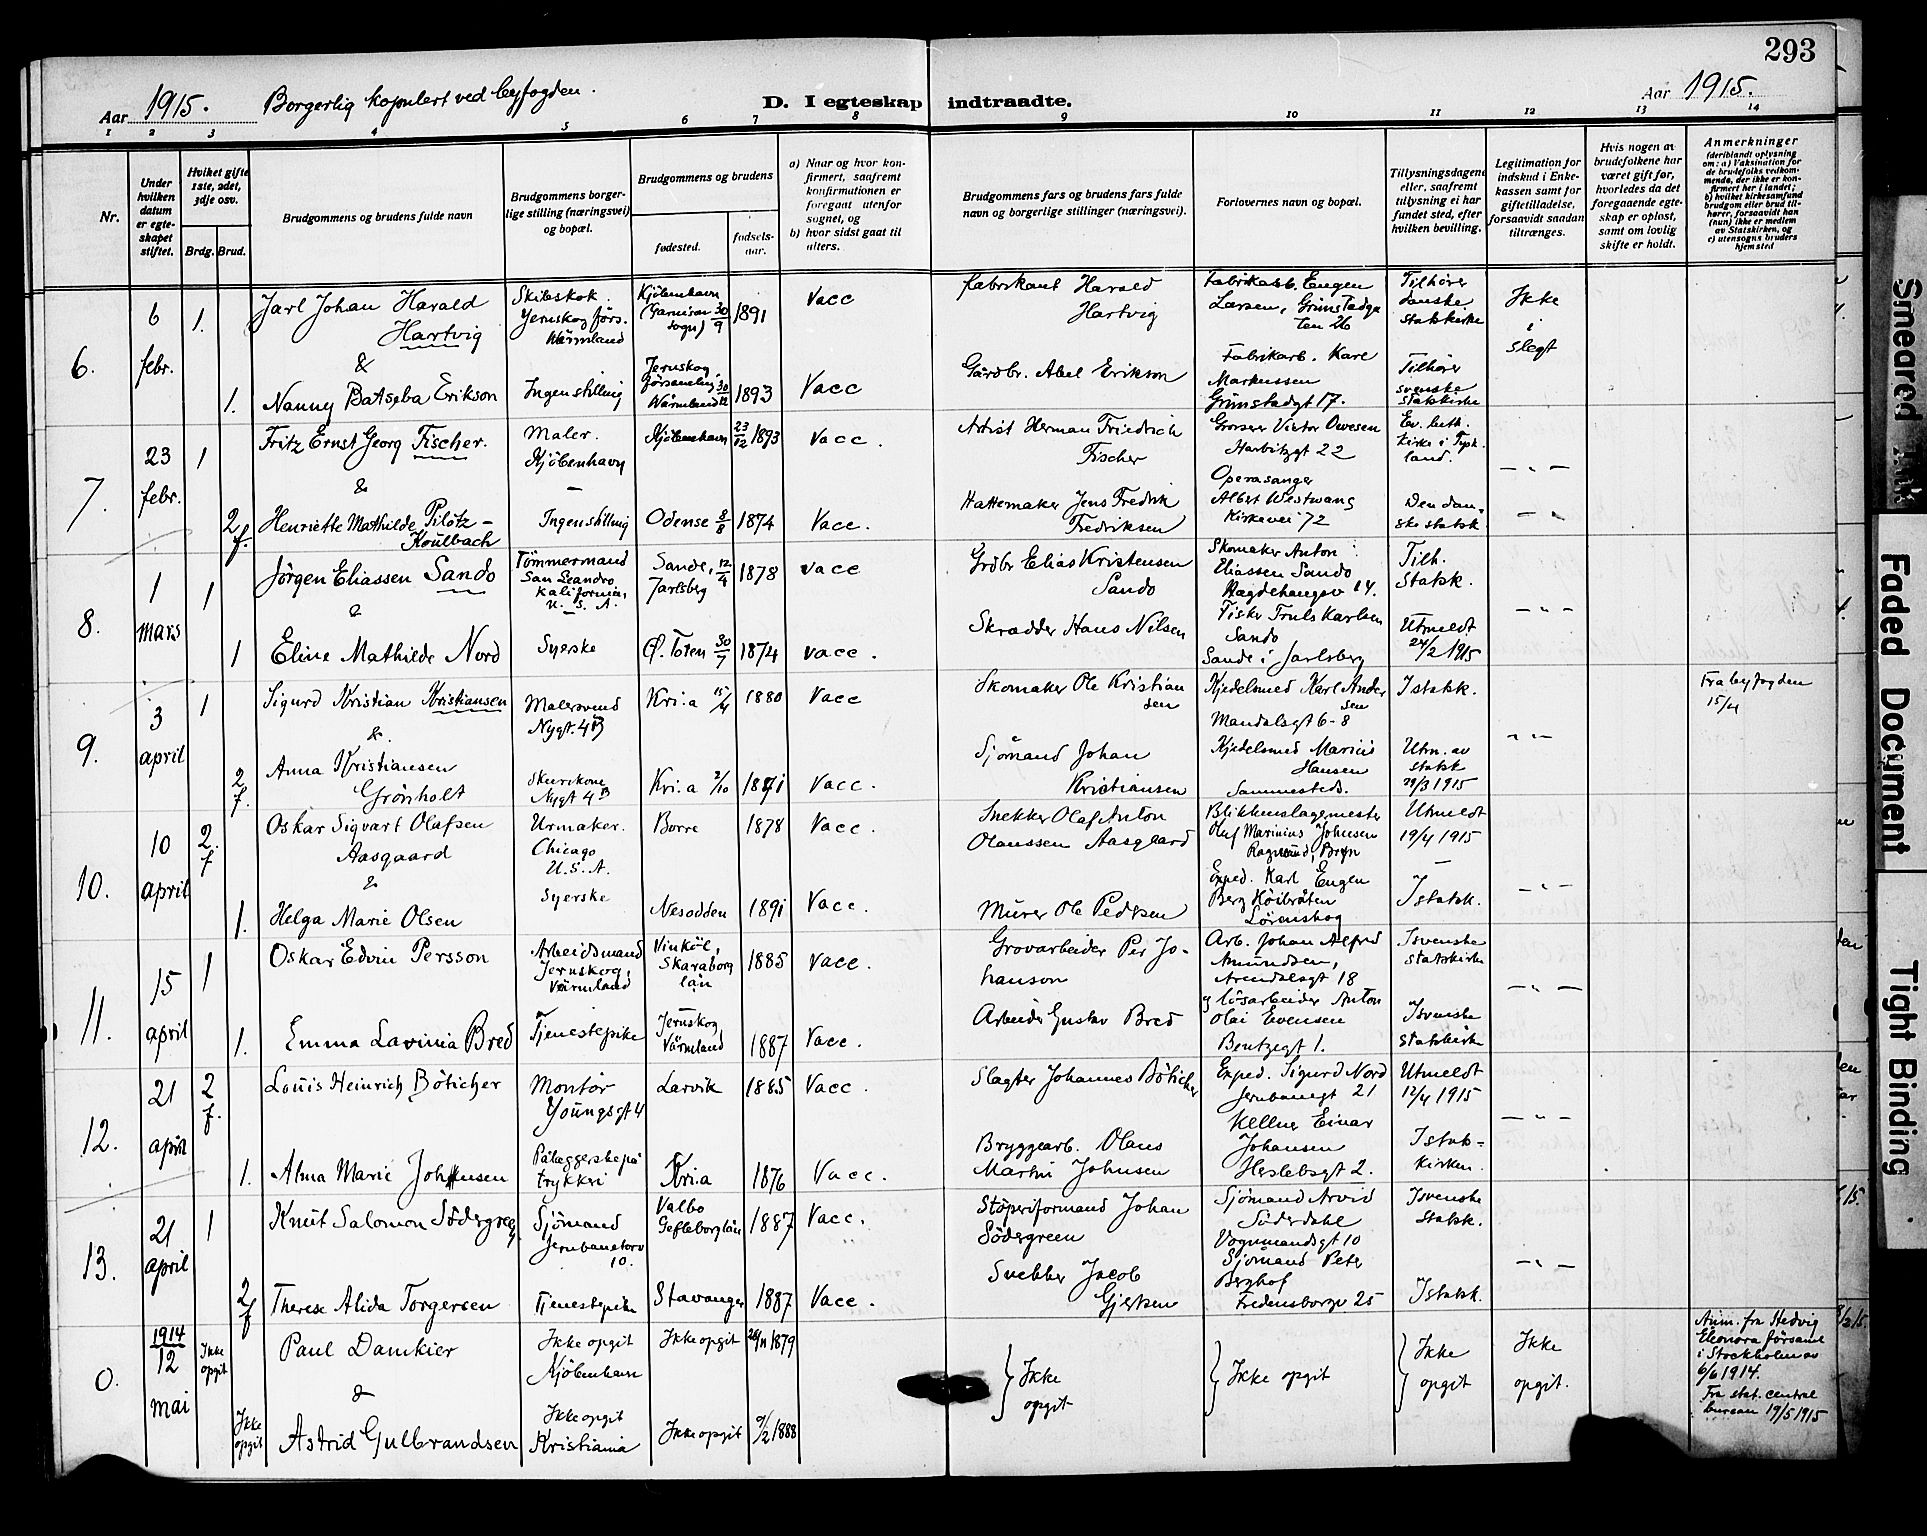 293
Aar 1915. Borgerlig kopulert ved byfogden. D. I egteskap indtraadte. Aar 1915.
1 2 3 4 5 6 7 8 9 10 11 12 13 14
Nr.
Under hvilken datum er egteskapet stiftet.
Hvilket gifte 1ste, 2det, 3dje osv.
Brdg. Brud.
Brudgommens og brudens fulde navn
Brudgommens borgerlige stilling (næringsvei) og bopæl.
Brudgommens og brudens
fødested. fødselsaar.
a) Naar og hvor konfirmert, saafremt konfirmationen er foregaat utenfor sognet, og
b) hvor sidst gaat til alters.
Brudgommens fars og brudens fars fulde navn og borgerlige stillinger (næringsvei).
Forlovernes navn og bopæl.
Tillysningsdagene eller, saafremt tillysning ei har fundet sted, efter hvilken bevilling.
Legitimation for indskud i Enkekassen samt for giftetilladelse, forsaavidt saadan tiltrænges.
Hvis nogen av brudefolkene har været gift før, hvorledes da det foregaaende egteskap er opløst, samt om lovlig skifte er holdt.
Anmerkninger
(deriblandt oplysning om: a) Vaksination for de brudefolks vedkommende, der ikke er konfirmert her i landet; b) hvilket kirkesamfund brudgom eller brud tilhører, forsaavidt han (hun) ikke er medlem av Statskirken, og c) utensogns bruders hjemsted
6. 6 febr. 1. Jarl Johan Harald Hartvig
Jernskog förs. Wärmland
Kjöbenhavn (Garnison sogn) 30/9 1891 Vacc
Fabrikant Harald Hartvig
Fabrikarb. Eugen Larsen, Grimstadgaten 26
Tilhörer danske statskirke
Ikke i slegt
&
1. Nanny Batseba Erikson
Ingen stilling
Jernskog församling Wärmland 30/12 1893 Vacc
Gårdbr. Abel Erikson
Fabrikarb. Karl Markussen Grimstadgt 17.
Tilhörer svenske statskirke
7. 23 febr. 1 Fritz Ernst Georg Fischer.
Maler. Kjöbenhavn
Kjöbenhavn 23/12 1893 Vacc.
Artist Herman Friedrich Fischer
Grosserer Victor Owesen Harbitzgt 22
Ev. luth. kirke i Tyskland.
— " —
&
2 f. Henriette Mathilde Pilötz-Koulbach
Ingen stilling
Odense 8/8 1874 Vacc.
Hattemaker Jens Fredrik Fredriksen
Operasanger Albert Westwang Kirkevei 72
Den danske statsk.
— " —
8. 1 mars 1 Jörgen Eliassen Sando
Tömmermand San Leandro, Kalifornien, U. S. A.
Sande, Jarlsberg 12/4 1878 vacc
Grdbr Elias Kristensen Sando
Skomaker Anton Eliassen Sando 14.
Tilh. Statsk.
— " —
&
1 Eline Mathilde Nord
Syerske
Ø. Toten 30/7 1874 vacc.
Skrædder Hans Nilsen
Fisker Truls Karlsen Sando Sande i Jarlsberg
Utmeldt 24/2 1915
9. 3 april 1 Sigurd Kristian Kristiansen
Malersvend Nygt. 4B
Kri:a 15/4 1880 Vacc
Skomaker Ole Kristiansen
Kjedelsmed Karl Andersen Mandalsgt 6-8
I statsk.
Fra byfogden 15/4
— " —
&.
2 f. Anna Kristiansen Grönholt
Skurekone Nygt 4B
Kri:a 2/10 1871 Vacc.
Sjömand Johan Kristiansen
Kjedelsmed Marius Hansen Sammesteds.
Utm. av statsk 29/3 1915
10. 10 april 2 f Oskar Sigvart Olafsen Aasgaard
Urmaker. Chicago U.S.A.
Borre 1878 Vacc.
Snekker Olaf Anton Olaussen Aasgaard
Blikkenslagermester Oluf Marinius Johnsen Bryn
Utmeldt 19/4 1915
&
1. Helga Marie Olsen
Syerske
Nesodden 1891 Vacc.
Murer Ole Pedersen
Exped. Karl Eugen Berg Lörenskog
I statsk.
— " —
11. 15 april 1 Oskar Edvin Persson
Arbeidsmand Jernskog, Värmland
Vinköl, Skaraborg län 1885 Vacc.
Grovarbeider Per Johanson
Arb. Johan Alfred Amundsen, Arendalsgt 18
I svenske statskirke
— " —
1. Emma Lavinia Bred
Tjenestepike
Jernskog Värmland 1887 Vacc.
Arbeider Gustav Bred
og lösarbeider Anton Olai Evensen Bentzegt 1.
I svenske statskirke
12. 21 april 2 f. Louis Heinrich Böticher
Montör Youngsgt 4
Larvik 1885 Vacc.
Slagter Johannes Böticher
Exped. Sigurd Nord Jernbanegt 21
Utmeldt 12/4 1915
— " —
1. Alma Marie Johnsen
Pålæggerske på trykkri
Kri:a 1876 Vacc.
Bryggearb. Olaus Martin Johnsen
Kellner Einar Johansen Heslebsgt 2.
I statskirken.
13. 21 april 1 Knut Salomon Södergreen
Sjömand Jernbanetorv 10.
Valbo Gefleborglän 1887 Vacc.
Støperiformand Johan Södergreen
Sjömand Arvid Söderdahl Vognmandsgt 10
I svenske Statsk.
— " —
2 f Therese Alida Torgersen
Tjenestepike
Stavanger 1887 Vacc.
Snekker Jacob Gjertsen
Sjömand Peter Berghof Fredensborgv 25
I statsk.
0. 1914 12 mai Ikke opgit Paul Damkier
Ikke opgit Kjöbenhavn
Ikke opgit 26/11 1879
Ikke opgit
Ikke opgit
Ikke opgit
Ikke opgit.
Anm. fra Hedvig Eleonora församl i Stockholm av 6/6 1914. Fra stat. central bureau 19/5 1915
&
Ikke opgit Astrid Gulbrandsen
Ikke opgit Kristiania
Ikke opgit 9/2 1888
Smeared Ink
Faded Document
Tight Binding